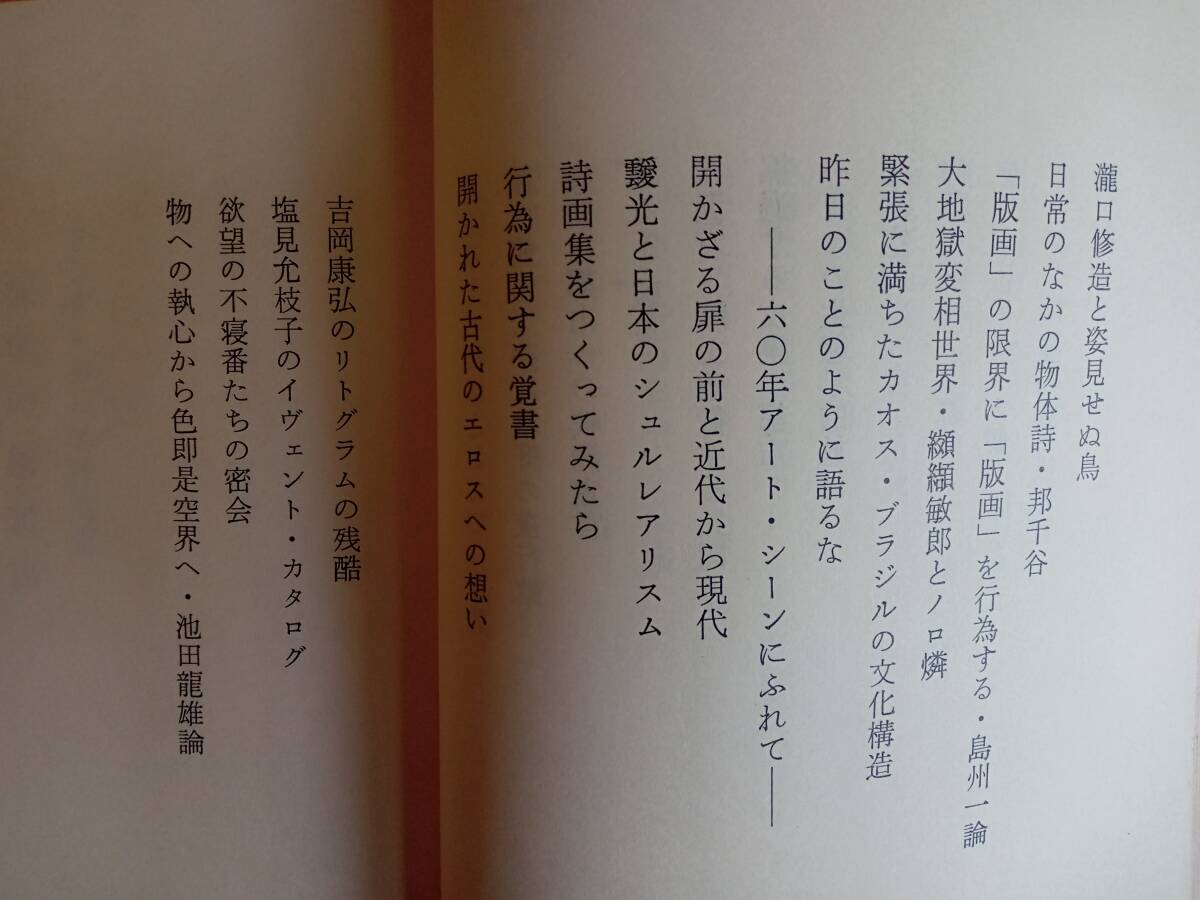 瀧口修造と姿見せぬ鳥
日常のなかの物体詩・邦千谷
「版画」の限界に「版画」を行為する・島州一論
大地獄変相世界・纐纈敏郎とノロ燐
緊張に満ちたカオス・ブラジルの文化構造
昨日のことのように語るな
――六〇年アート・シーンにふれて――
開かざる扉の前と近代から現代
靉光と日本のシュルレアリスム
詩画集をつくってみたら
行為に関する覚書
開かれた古代のエロスへの想い
吉岡康弘のリトグラムの残酷
塩見允枝子のイヴェント・カタログ
欲望の不寝番たちの密会
物への執心から色即是空界へ・池田龍雄論